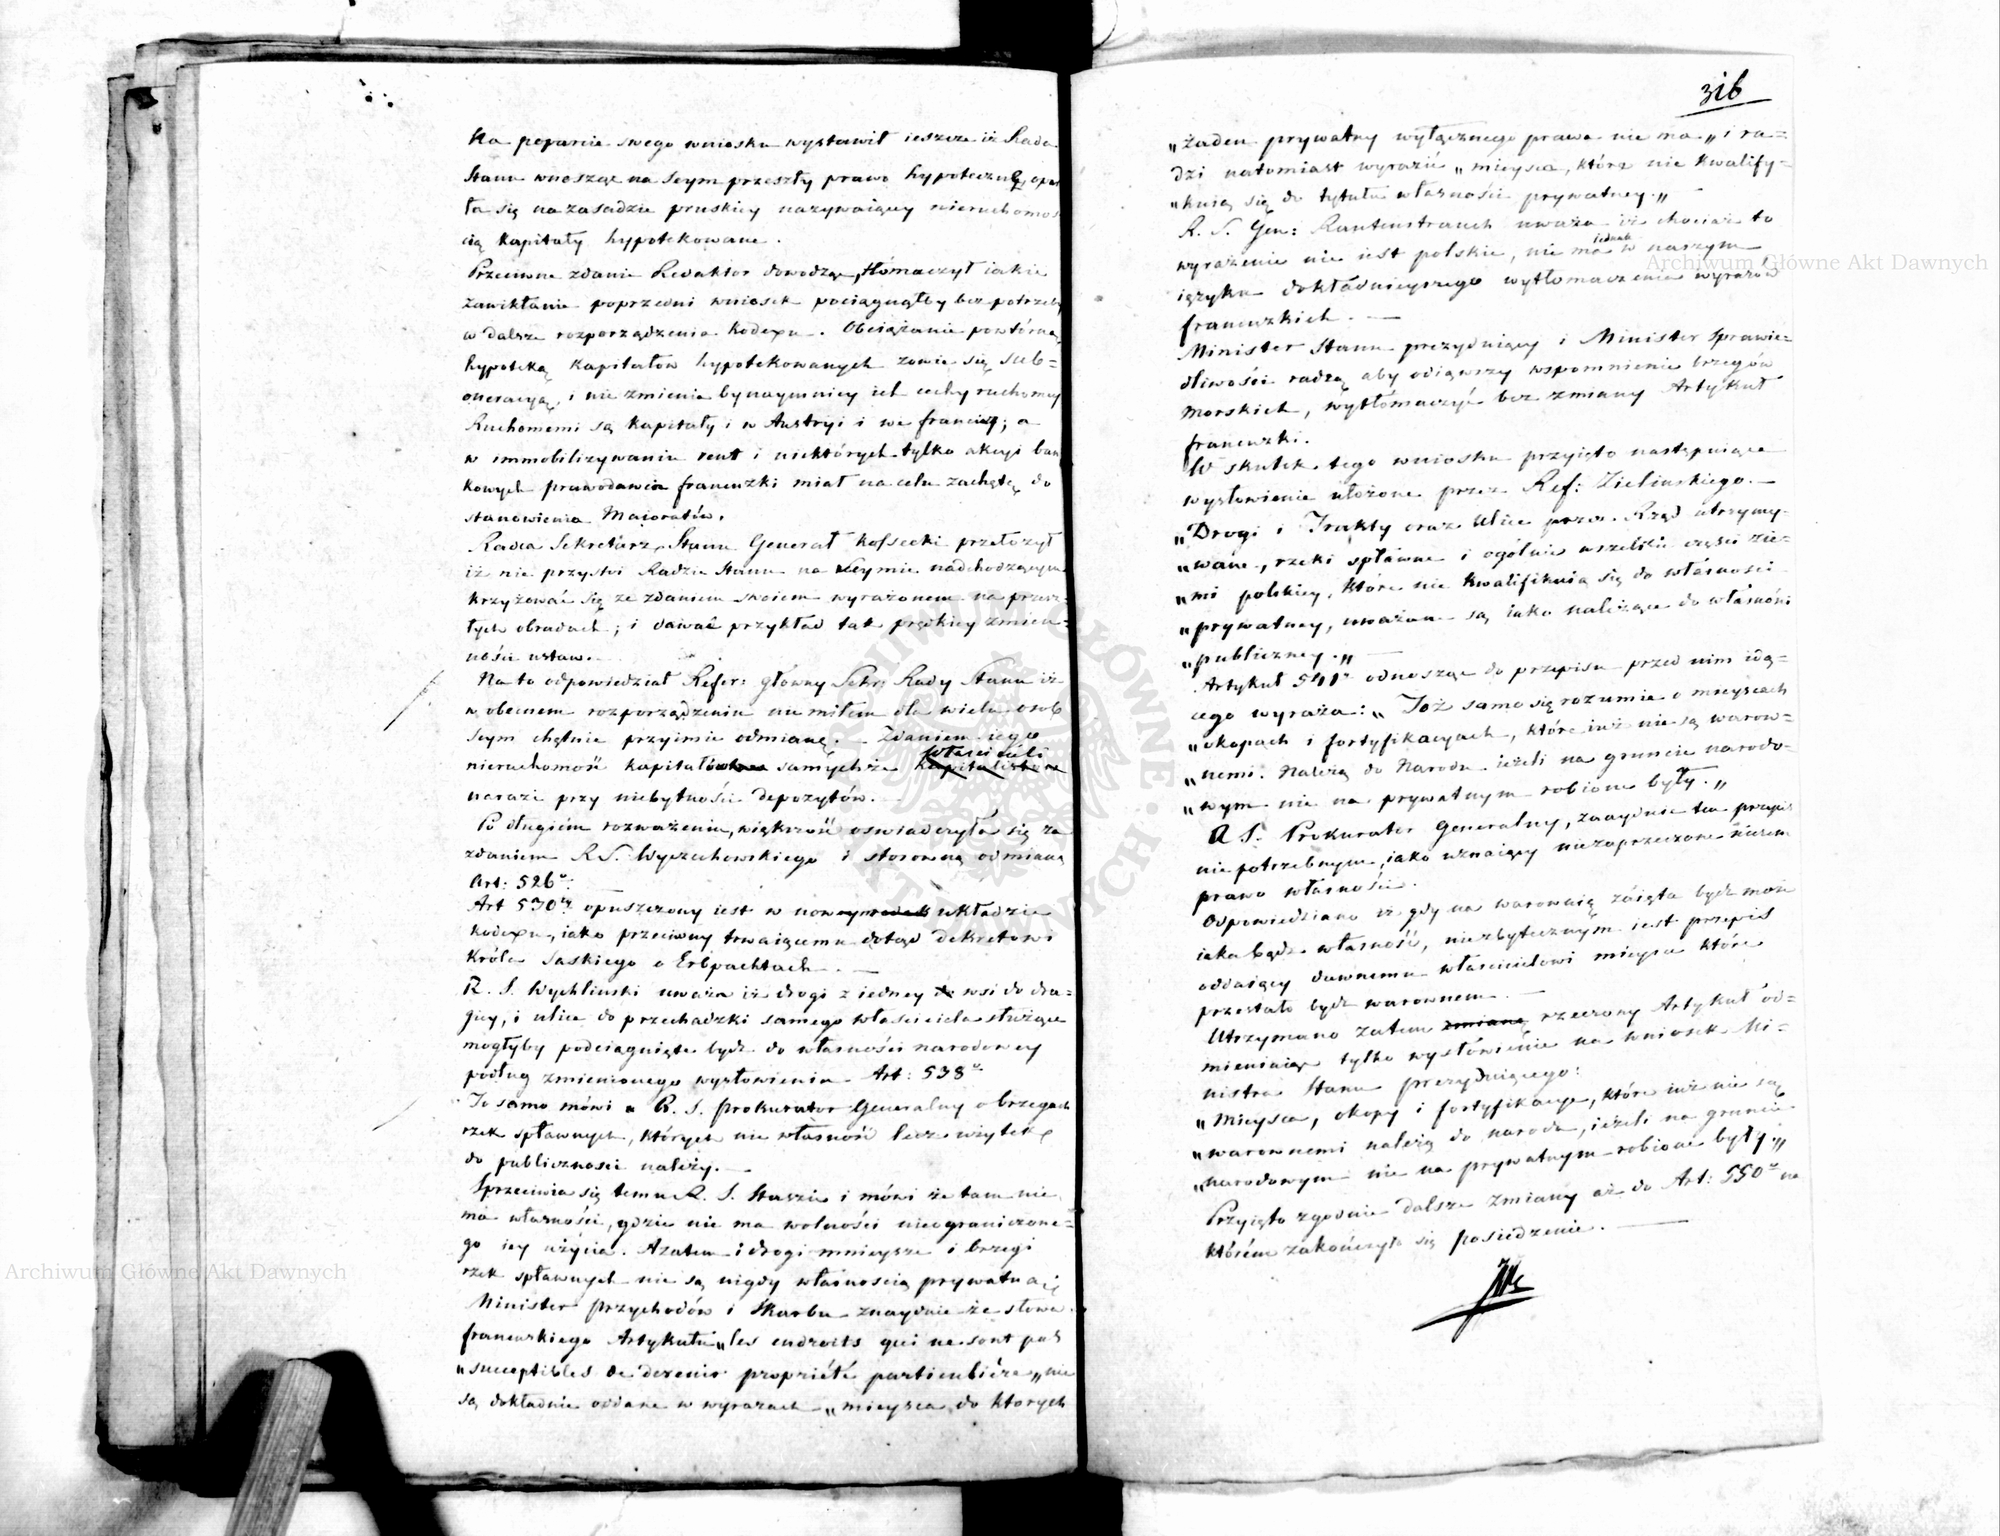 Na poparcie swego wniosku wystawił ieszcze iż Rada
Stanu wnosząc na Seym przeszły prawo hypoteczne, opar
ła się na zasadzie pruskiey nazywaiącey nieruchomoś
cią kapitały hypotekowane.
Przeciwne zdanie Redaktor dowodząc, tłómaczył iakie
zawikłanie poprzedni wniosek pociągnąłby bez potrzeby
w dalsze rozporządzenia kodexu. Obciążanie powtórną
hypoteką kapitałów hypotekowanych zowie się sub=
oneracyą, i nie zmienia bynaymniey ich cechy ruchomey
Ruchomemi są kapitały i w Austryi i we francyi; a
w immobilizywaniu rent i niektórych tylko akcyi ban
kowych prawodawca francuzki miał na celu zachętę do
stanowienia Maioratów.
Radca Sekretarz Stanu Generał Kossecki przełożył
iż nie przystoi Radzie Stanu na Seymie nadchodzącym
krzyżować się ze zdaniem swoiem wyrażonem na przesz=
łych obradach; i dawać przykład tak prędkiey zmien=
ności ustaw.
Na to odpowiedział Refer: główny Sekr: Rady Stanu iż
w obecnem rozporządzeniu nie miłem dla wielu osob
Seym chętnie przyimie odmianę. Zdaniem iego
właścicieli
nieruchomość kapitałów samychże kapitalistów
narazi przy niebytności depozytów.
Po długiém rozważeniu, większość oświadczyła się za
zdaniem R. S. Wyczechowskiego i stosowną odmianą
Art: 526º:
Art 530ty opuszczony iest w nowym układzie
kodexu, iako przeciwny trwaiącemu dotąd Dekretowi
Króla Saskiego o Erbpachtach. —
R. S. Wychliński uważa iż drogi z iedney do wsi do dru=
giey, i ulice do przechadzki samego właściciela służące
mogłyby podciągnięte bydź do własności narodowey
podług zmienionego wysłowienia Art: 538º
To samo mówi R. S. Prokurator Generalny o brzegach
rzek spławnych, których nie własność lecz użytek
do publiczności należy. —
Sprzeciwia się temu R. S. Staszic i mówi że tam nie
ma własności, gdzie nie ma wolności nieograniczone=
go iey użycia. A zatem i drogi mnieysze i brzegi
rzek spławnych nie są nigdy własnością prywatną.
Minister Przychodów i Skarbu znayduie że słowa
francuskiego Artykułu „les endroits qui ne sont pas
„susceptibles de devenir propriété particulière„ nie
są dokładnie oddane w wyrazach „mieysca do ktorych
316
„żaden prywatny wyłącznego prawa nie ma„ i ra=
dzi natomiast wyrazić „mieysca, które nie kwalify=
„kuią się do tytułu własności prywatney.„
R. S. Gen: Rautenstrauch uważa iż chociaż to
iednak
wyrażenie nie iest polskie, nie ma w naszym
ięzyku dokładnieyszego wytłomaczenia wyrazów
francuzkich. —
Minister Stanu prezyduiący i Minister Sprawie=
dliwości radzą aby odiąwszy wspomnienie brzegów
morskich, wytłómaczyć bez zmiany Artykuł
francuzki.
W skutek tego wniosku przyięto następuiące
wysłowienie ułożone przez Ref: Zielinskiego. —
„Drogi i Trakty oraz Ulice przez Rząd utrzymy=
„wane, rzeki spławne i ogólnie wszelkie części zie=
„mi polskiey, które nie kwalifikuią się do własności
„prywatney, uważane są iako należące do własności
„publiczney.„ —
Artykuł 541y odnosząc do przepisu przed nim idą=
cego wyraża: „Toż samo się rozumie o mieyscach
„okopach i fortyfikacyach, które iuż nie są warow=
„nemi. Należą do Narodu ieżeli na gruncie narodo=
„wym nie na prywatnym robione były.„
R. S. Prokurator Generalny, znayduie ten przepis
niepotrzebnym, iako uznaiący niezaprzeczone
prawo własności.
Odpowiedziano iż gdy na warownią zaięta bydź może
iaka bądź własność, niezbytecznym iest przepis
oddaiący dawnemu właścicielowi mieysce które
przestało bydź warownem. —
Utrzymano zatem zmianę rzeczony Artykuł od=
mieniaiąc tylko wysłówienie na wniosek Mi=
nistra Stanu prezyduiącego:
„Mieysca, okopy i fortyfikacye, które iuż nie są
„warownemi należą do narodu, ieżeli na gruncie
„narodowym nie na prywatnym robione były.„
Przyięto zgodnie dalsze zmiany aż do Art: 550º na
którém zakończyło się posiedzenie. —